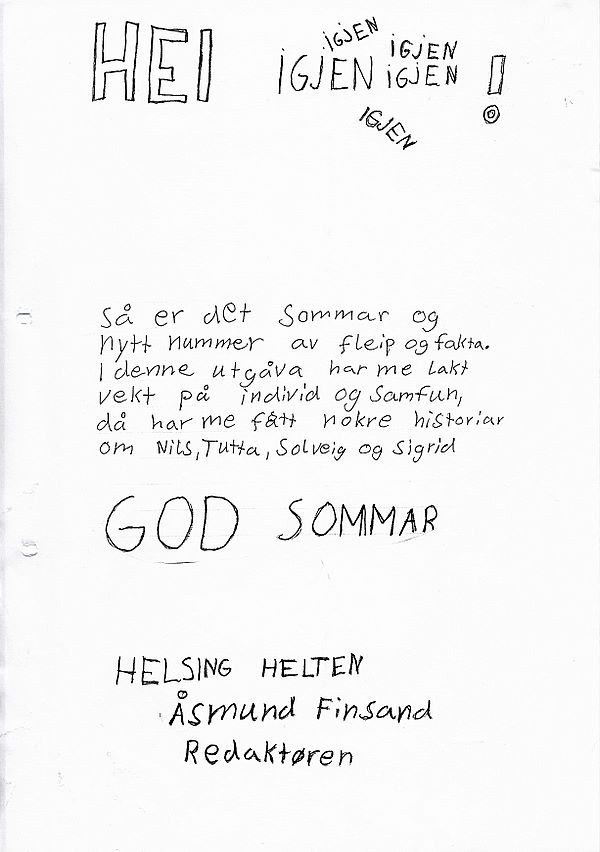 HEI IGJEN IGJEN IGJEN IGJEN !
IGJEN
Så er det Sommar og
nytt nummer av fleip og fakta.
I denne utgåva har me lakt
vekt på individ og Samfun,
då har me fått nokre historiar
om Nils, Tutta, Solveig og Sigrid
GOD SOMMAR
HELSING HELTEN
Åsmund Finsand
Redaktøren